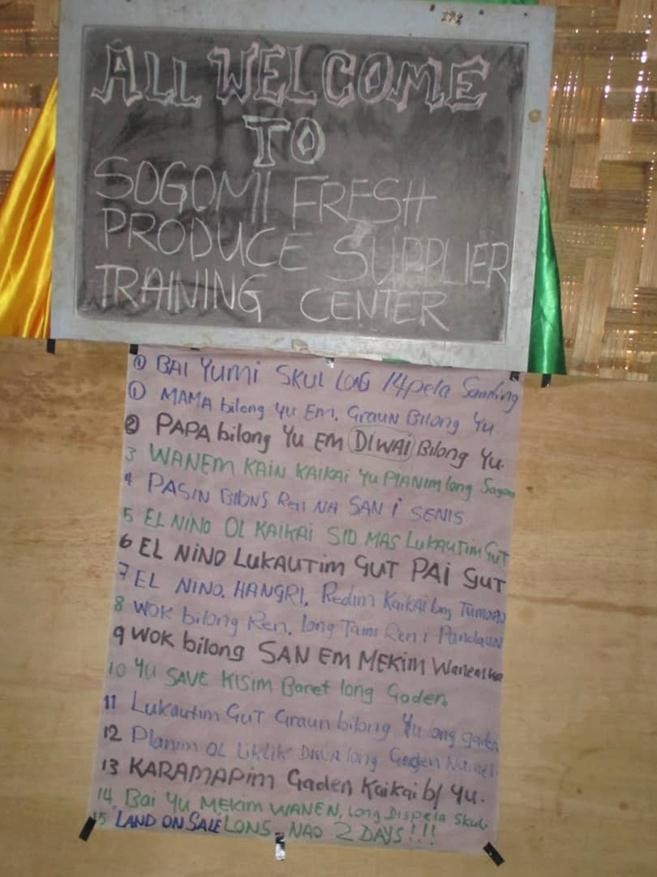 ALL WELCOME
TO
SOGOMI FRESH
PRODUCE SUPPLIER
TRAINING CENTER
① BAI YUMI SKUL LONG 14pela Samting
① MAMA bilong Yu Em. Graun Bilong Yu
② PAPA bilong Yu EM DIWAI Bilong Yu.
3 WANEM KAIN KAIKAI Yu PlANIM long
4 PASIN Ren NA SAN i SENIS
5 EL NINO OL KAIKAI SID MAS LUKAUTIM GUT
6 EL NINO LUKAUTIM GUT PAI GUT
7 EL NINO. HANGRI. Redim Kaikai long
8 WOK bilong Ren. long Taim Ren i
9 WOK bilong SAN EM MEKIM
10 YU SAVE KISIM Baret long Gaden
11 Lukautim GUT Graun bilong Yu long gaden
12 Planim OL LikLik long Gaden
13 KARAMAPim Gaden Kaikai b/ Yu.
14 Bai Yu MEKIM WANEN, long Dispela Skul.
15 LAND ON SALE LONS - NAO 2 DAYS !!!